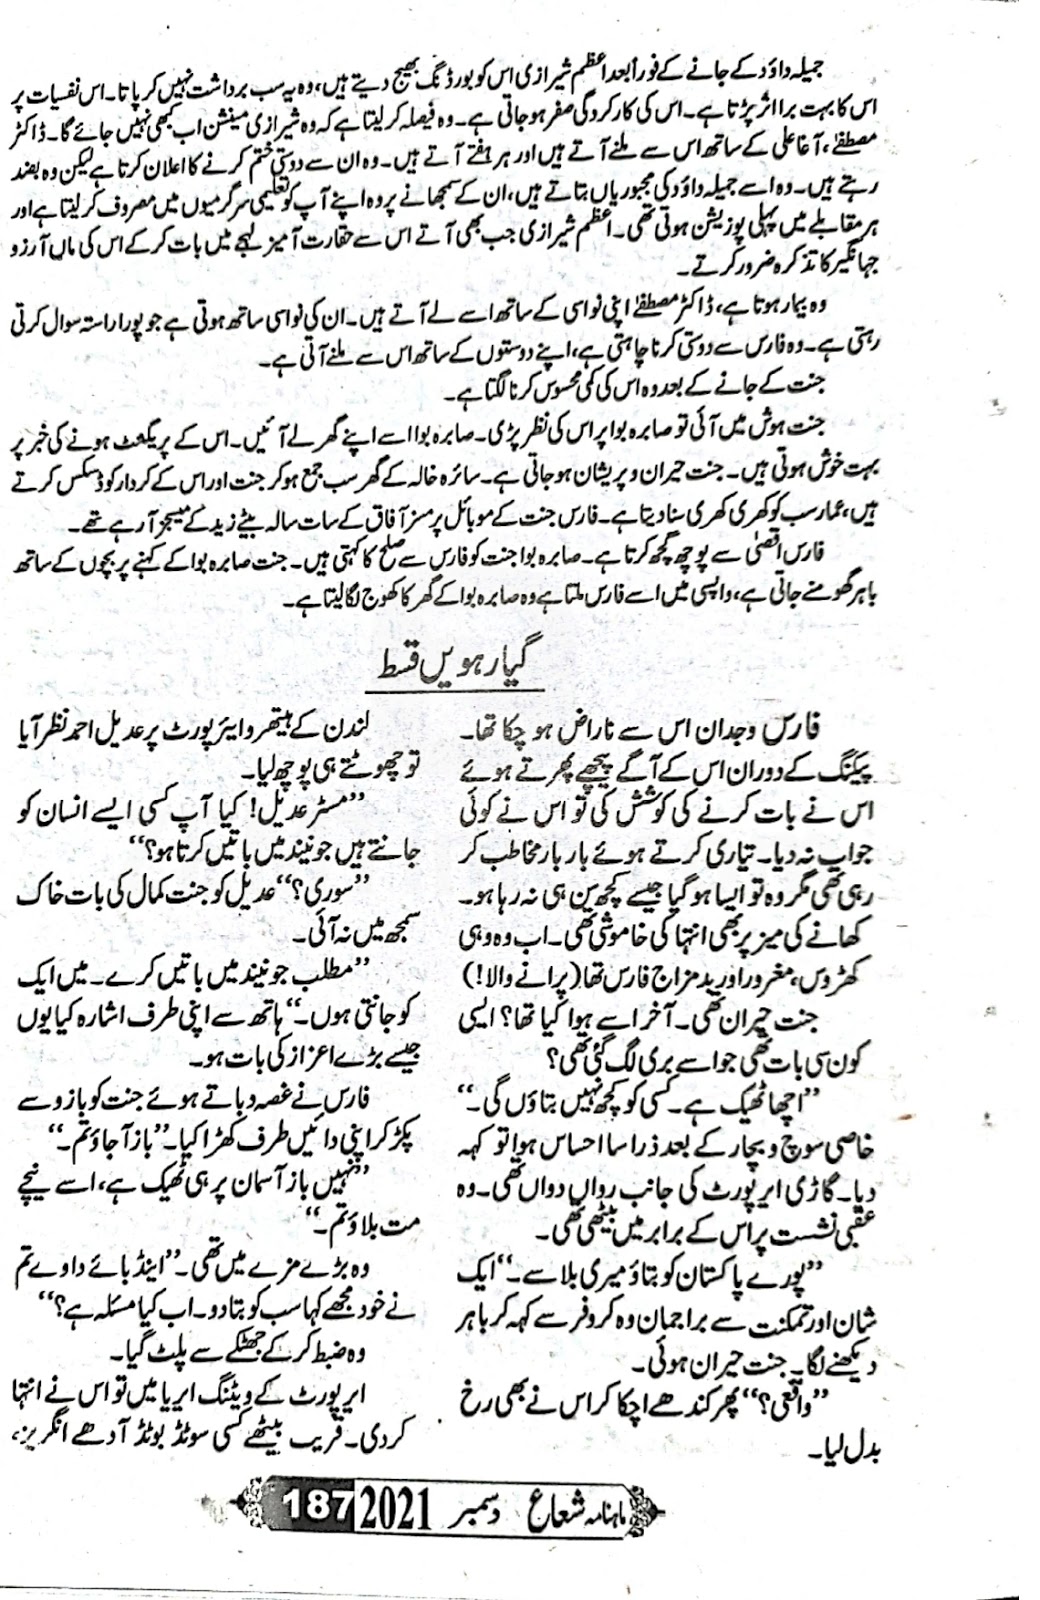 جمیلہ داؤد کے جانے کے فوراً بعد اعظم شیرازی اس کو بورڈنگ بھیج دیتے ہیں، وہ یہ سب برداشت نہیں کر پاتا۔ اس نفسیات پر
اس کا بہت برا اثر پڑتا ہے۔ اس کی کارکردگی صفر ہو جاتی ہے۔ وہ فیصلہ کر لیتا ہے کہ وہ شیرازی مینشن اب کبھی نہیں جائے گا۔ ڈاکٹر
مصطفٰے، آغا علی کے ساتھ اس سے ملنے آتے ہیں اور ہر ہفتے آتے ہیں۔ وہ ان سے دوستی ختم کرنے کا اعلان کرتا ہے لیکن وہ بضد
رہتے ہیں۔ وہ اسے جمیلہ داؤد کی مجبوریاں بتاتے ہیں، ان کے سمجھانے پر وہ اپنے آپ کو تعلیمی سرگرمیوں میں مصروف کر لیتا ہے اور
ہر مقابلے میں پہلی پوزیشن ہوتی تھی۔ اعظم شیرازی جب بھی آتے اس سے حقارت آمیز لہجے میں بات کر کے اس کی ماں آرزو
جہانگیر کا تذکرہ ضرور کرتے۔
وہ بیمار ہوتا ہے، ڈاکٹر مصطفٰے اپنی نواسی کے ساتھ اسے لے آتے ہیں۔ ان کی نواسی ساتھ ہوتی ہے جو پورا راستہ سوال کرتی
رہتی ہے۔ وہ فارس سے دوستی کرنا چاہتی ہے، اپنے دوستوں کے ساتھ اس سے ملنے آتی ہے۔
جنت کے جانے کے بعد وہ اس کی کمی محسوس کرنے لگتا ہے۔
جنت ہوش میں آئی تو صابرہ بوا پر اس کی نظر پڑی۔ صابرہ بوا اسے اپنے گھر لے آئیں۔ اس کے پریگننٹ ہونے کی خبر پر
بہت خوش ہوتی ہیں۔ جنت حیران و پریشان ہو جاتی ہے۔ سائرہ خالہ کے گھر سب جمع ہو کر جنت اور اس کے کردار کو ڈسکس کرتے
ہیں، عمار سب کو کھری کھری سنا دیتا ہے۔ فارس جنت کے موبائل پر مسز آفاق کے سات سالہ بیٹے زید کے میسجز آ رہے تھے۔
فارس اقصیٰ سے پوچھ گچھ کرتا ہے۔ صابرہ بوا جنت کو فارس سے صلح کا کہتی ہیں۔ جنت صابرہ بوا کے کہنے پر بچوں کے ساتھ
باہر گھومنے جاتی ہے، واپسی میں اسے فارس ملتا ہے وہ صابرہ بوا کے گھر کا کھوج لگا لیتا ہے۔
گیارہویں قسط
فارس وجدان اس سے ناراض ہو چکا تھا۔
پیکنگ کے دوران اس کے آگے پیچھے پھرتے ہوئے
اس نے بات کرنے کی کوشش کی تو اس نے کوئی
جواب نہ دیا۔ تیاری کرتے ہوئے بار بار مخاطب کر
رہی تھی مگر وہ تو ایسا ہو گیا جیسے کچھ سن ہی نہ رہا ہو۔
کھانے کی میز پر بھی انتہا کی خاموشی تھی۔ اب وہ وہی
کھڑوس، مغرور اور بد مزاج فارس تھا (پرانے والا!)
جنت حیران تھی۔ آخر اسے ہوا کیا تھا؟ ایسی
کون سی بات تھی جو اسے بری لگ گئی تھی؟
”اچھا ٹھیک ہے۔ کسی کو کچھ نہیں بتاؤں گی۔“
خاصی سوچ و بچار کے بعد ذرا سا احساس ہوا تو کہہ
دیا۔ گاڑی ایر پورٹ کی جانب رواں دواں تھی۔ وہ
عقبی نشست پر اس کے برابر میں بیٹھی تھی۔
”پورے پاکستان کو بتاؤ میری بلا سے۔“ ایک
شان اور تمکنت سے براجمان وہ کروفر سے کہہ کر باہر
دیکھنے لگا۔ جنت حیران ہوئی۔
”واقعی؟“ پھر کندھے اچکا کر اس نے بھی رخ
بدل لیا۔
لندن کے ہیتھرو ایئرپورٹ پر عدیل احمد نظر آیا
تو چھوٹتے ہی پوچھ لیا۔
”مسٹر عدیل! کیا آپ کسی ایسے انسان کو
جانتے ہیں جو نیند میں باتیں کرتا ہو؟“
”سوری؟“ عدیل کو جنت کمال کی بات خاک
سمجھ میں نہ آئی۔
”مطلب جو نیند میں باتیں کرے۔ میں ایک
کو جانتی ہوں۔“ ہاتھ سے اپنی طرف اشارہ کیا یوں
جیسے بڑے اعزاز کی بات ہو۔
فارس نے غصہ دباتے ہوئے جنت کو بازو سے
پکڑ کر اپنی دائیں طرف کھڑا کیا۔ ”باز آ جاؤ تم۔“
”نہیں باز آسمان پر ہی ٹھیک ہے، اسے نیچے
مت بلاؤ تم۔“
وہ بڑے مزے میں تھی۔ ”اینڈ بائے داوے تم
نے خود مجھے کہا سب کو بتا دو۔ اب کیا مسئلہ ہے؟“
وہ ضبط کر کے جھٹکے سے پلٹ گیا۔
ایر پورٹ کے ویٹنگ ایریا میں تو اس نے انتہا
کر دی۔ قریب بیٹھے کسی سوٹڈ بوٹڈ آدھے انگریز،
ماہنامہ شعاع دسمبر 2021 187